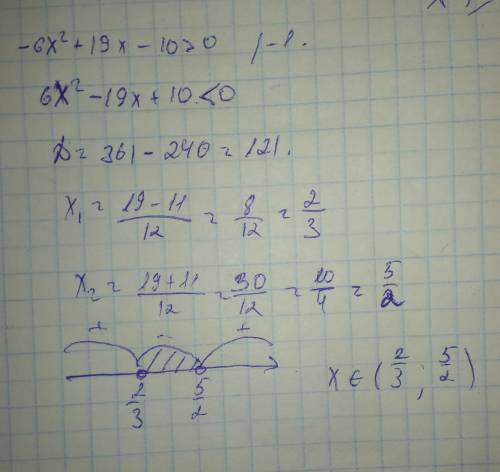 -6x² + 19x - 10 > 0 /-1.
6x² - 19x + 10 < 0
D = 361 - 240 = 121.
x₁ = (19 - 11)/12 = 8/12 = 2/3
x₂ = (19 + 11)/12 = 30/12 = 10/4 = 5/2
+ - +
2/3 5/2
x ∈ (2/3 ; 5/2)